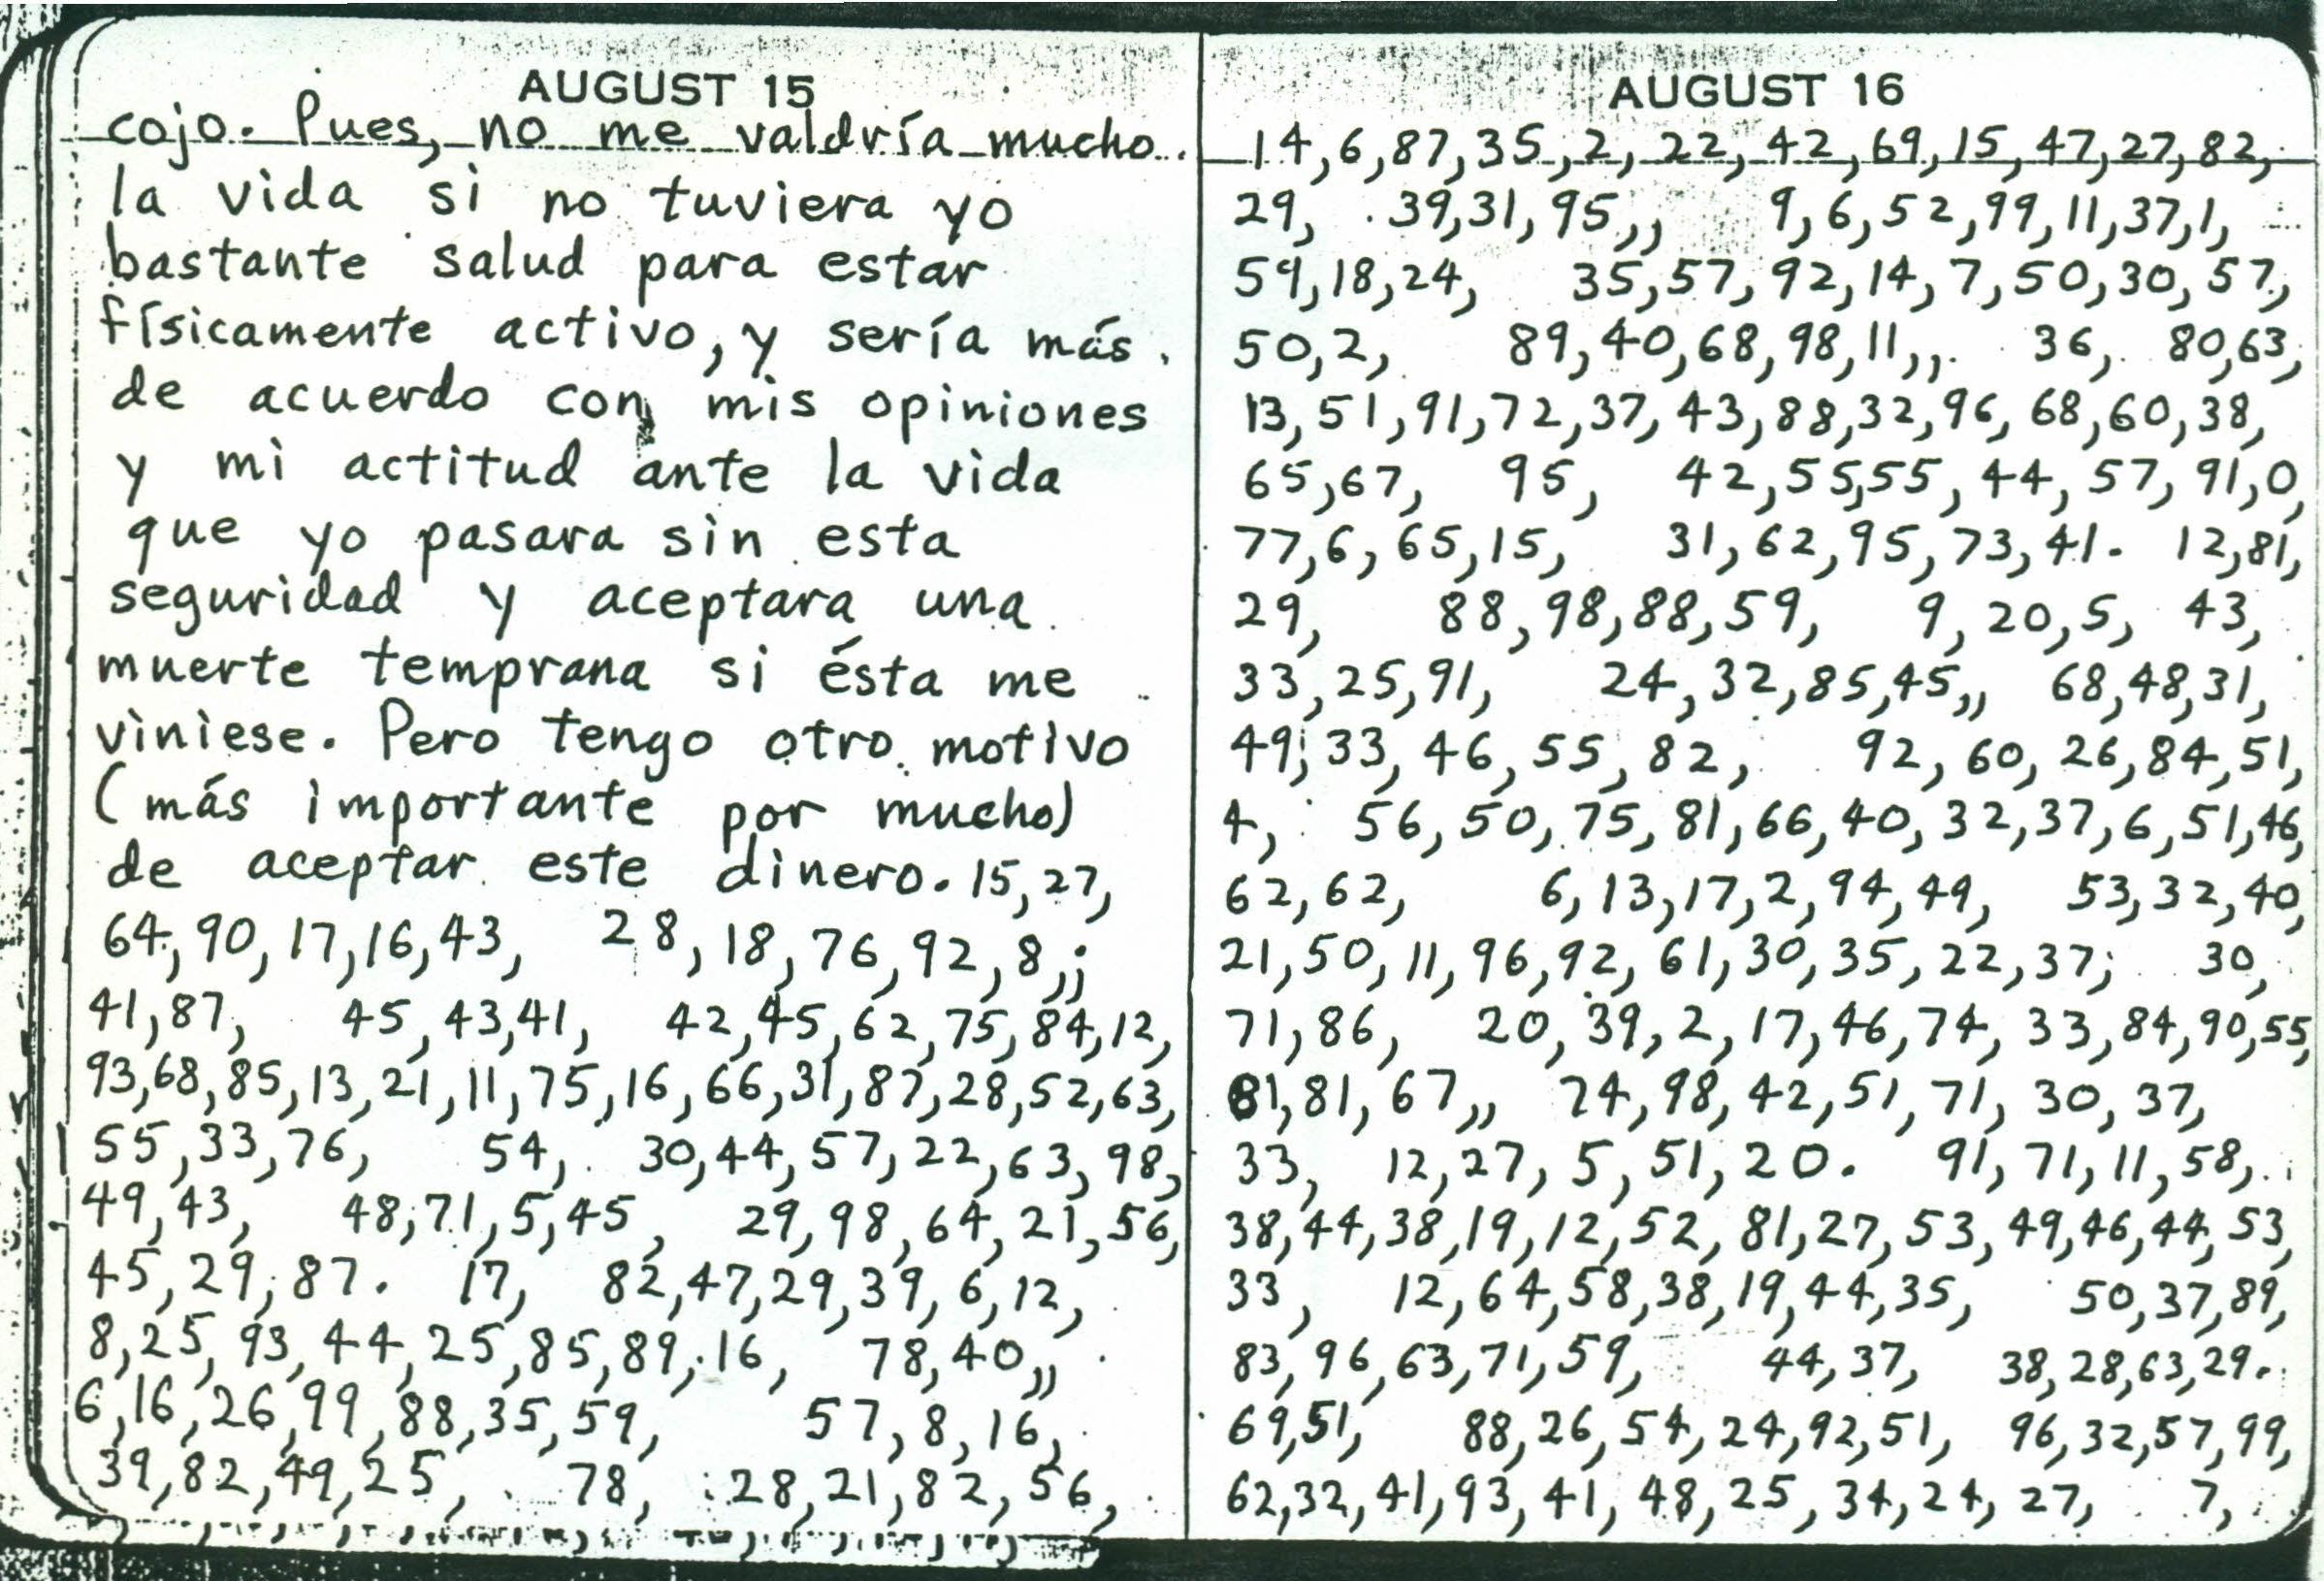 AUGUST 15
cojo. Pues, no me valdría mucho
la vida si no tuviera yo
bastante salud para estar
físicamente activo, y sería más
de acuerdo con mis opiniones
y mi actitud ante la vida
que yo pasara sin esta
seguridad y aceptara una
muerte temprana si ésta me
viniese. Pero tengo otro motivo
(más importante por mucho)
de aceptar este dinero. 15,27,
64,90,17,16,43, 28,18,76,92,8,;
41,87, 45,43,41, 42,45,62,75,84,12,
93,68,85,13,21,11,75,16,66,31,87,28,52,63,
55,33,76, 54, 30,44,57,22,63,98,
49,43, 48,71,5,45, 29,98,64,21,56,
45,29,87. 17, 82,47,29,39,6,12,
8,25,93,44,25,85,89,16, 78,40,,
6,16,26,99,88,35,59, 57,8,16,
39,82,49,25, 78, 28,21,82,56,
AUGUST 16
14,6,87,35,2,22,42,69,15,47,27,82,
29, 39,31,95,, 9,6,52,99,11,37,1,
59,18,24, 35,57,92,14,7,50,30,57,
50,2, 89,40,68,98,11,, 36, 80,63,
13,51,91,72,37,43,88,32,96,68,60,38,
65,67, 95, 42,55,55,44,57,91,0,
77,6,65,15, 31,62,95,73,41. 12,81,
29, 88,98,88,59, 9,20,5, 43,
33,25,91, 24,32,85,45,, 68,48,31,
49,33,46,55,82, 92,60,26,84,51,
4, 56,50,75,81,66,40,32,37,6,51,46,
62,62, 6,13,17,2,94,49, 53,32,40,
21,50,11,96,92,61,30,35,22,37; 30,
71,86, 20,39,2,17,46,74,33,84,90,55,
81,81,67,, 74,98,42,51,71,30,37,
33, 12,27,5,51,20. 91,71,11,58,
38,44,38,19,12,52,81,27,53,49,46,44,53,
33, 12,64,58,38,19,44,35, 50,37,89,
83,96,63,71,59, 44,37, 38,28,63,29.
69,51, 88,26,54,24,92,51, 96,32,57,99,
62,32,41,93,41,48,25,34,24,27, 7,